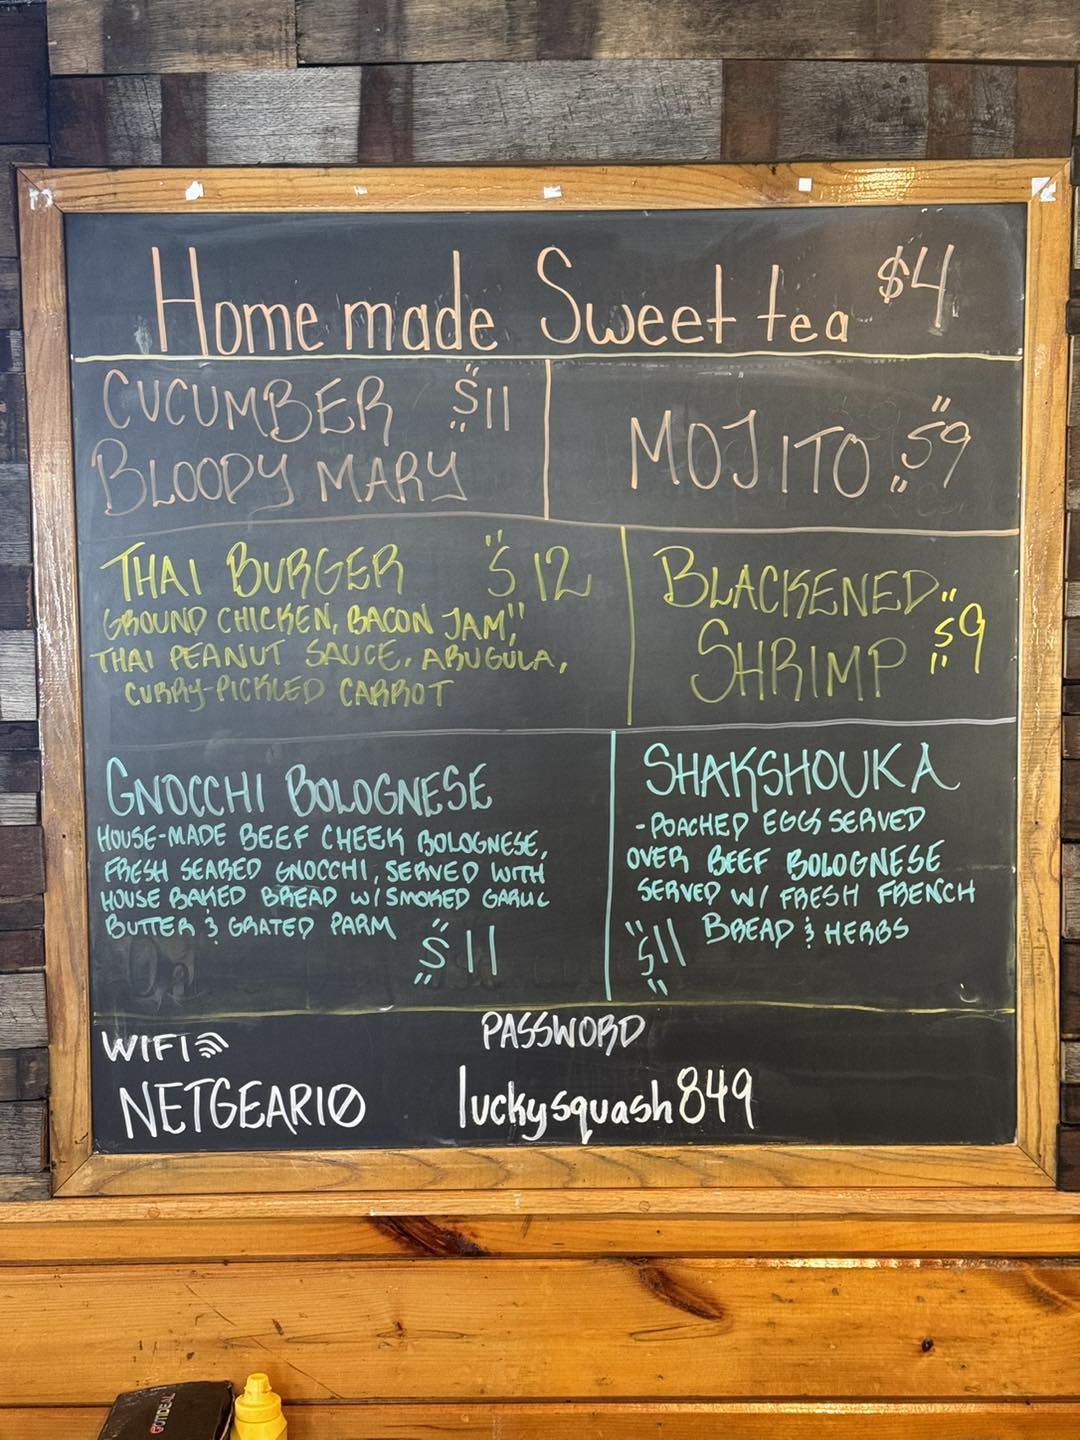 Homemade Sweet tea $4
CUCUMBER "$11"
BLOODY MARY
MOJITO "$9"
THAI BURGER "$12"
GROUND CHICKEN, BACON JAM,
THAI PEANUT SAUCE, ARUGULA,
CURRY-PICKLED CARROT
BLACKENED
SHRIMP "$9"
GNOCCHI BOLOGNESE
HOUSE-MADE BEEF CHEEK BOLOGNESE,
FRESH SEARED GNOCCHI, SERVED WITH
HOUSE BAKED BREAD W/ SMOKED GARLIC
BUTTER & GRATED PARM
"$11"
SHAKSHOUKA
-POACHED EGGS SERVED
OVER BEEF BOLOGNESE
SERVED W/ FRESH FRENCH
BREAD & HERBS
"$11"
WIFI
NETGEAR10
PASSWORD
luckysquash849